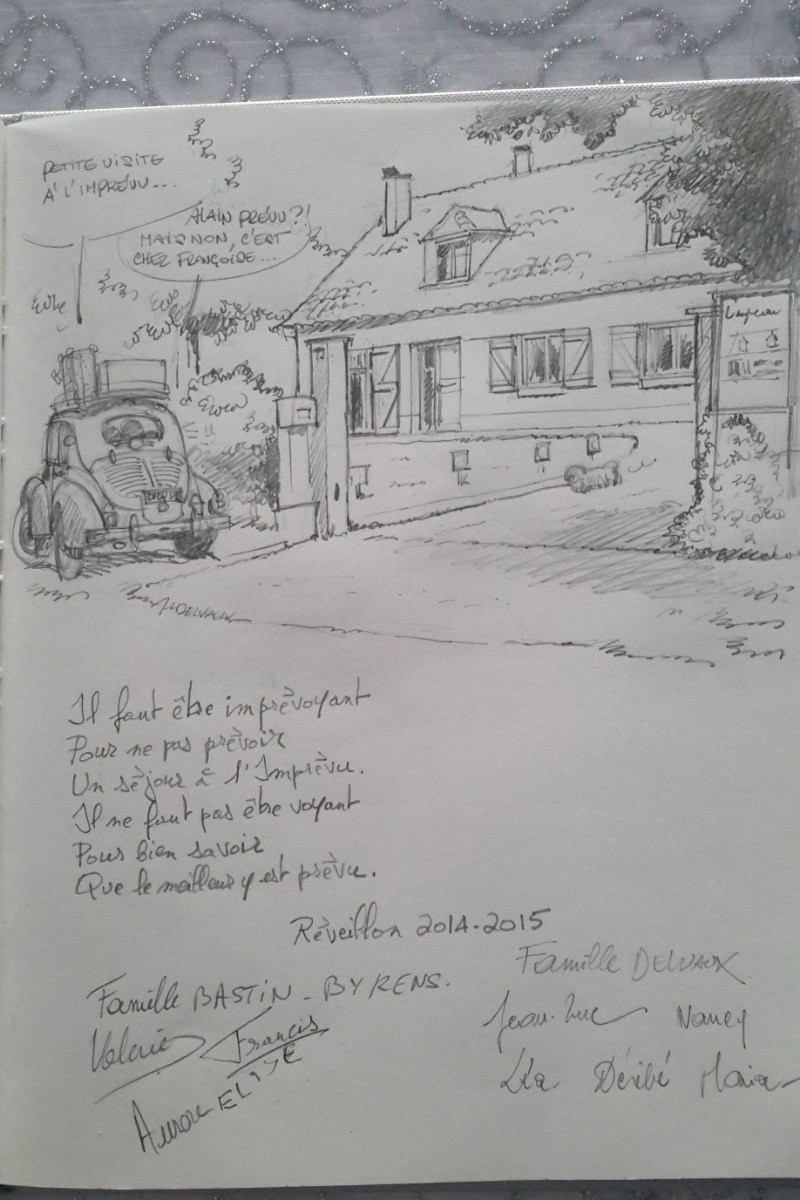 PETITE VISITE
À L'IMPRÉVU...
ALAIN PRÉVU?!
MAIS NON, C'EST
CHEZ FRANÇOISE...
L'imprévu
JL DELVAUX
Il faut être imprévoyant
Pour ne pas prévoir
Un séjour à l'Imprévu.
Il ne faut pas être voyant
Pour bien savoir
Que le meilleur y est prévu.
Réveillon 2014-2015
Famille DELVAUX
Famille BASTIN - BYRENS.
Jean-Luc Nancy
Valérie Francis
Léa Maria
Aurore ELYSE